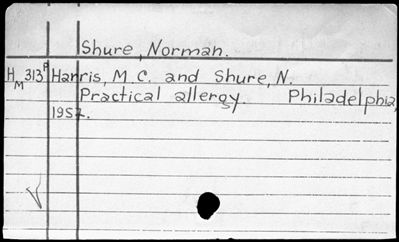 Shure, Norman.
HM 313P Harris, M.C. and Shure, N.
Practical allergy. Philadelphia,
1957.